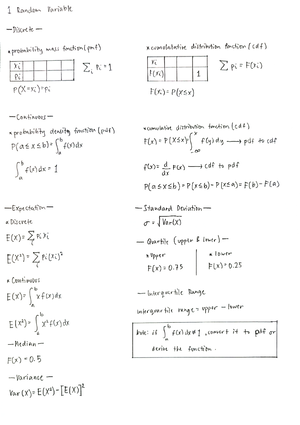 1 Random Variable
— Discrete —
• probability mass function (pmf)
xi
pi
∑i pi = 1
P(X=xi) = pi
• cumulative distribution function (cdf)
xi
F(xi) 1
∑ pi = F(xi)
F(xi) = P(X≤x)
— Continuous —
• probability density function (pdf)
P(a≤x≤b) = ∫ₐᵇ f(x)dx
∫ₐᵇ f(x)dx = 1
• cumulative distribution function (cdf)
F(x) = P(X≤x) = ∫₋∞ˣ f(y)dy → pdf to cdf
f(x) = d/dx F(x) → cdf to pdf
P(a≤X≤b) = P(x≤b) - P(x≤a) = F(b) - F(a)
— Expectation —
• Discrete
E(X) = ∑i pi xi
E(X²) = ∑i pi(xi)²
• Continuous
E(X) = ∫ₐᵇ x f(x)dx
E(X²) = ∫ₐᵇ x² f(x)dx
— Median —
F(x) = 0.5
— Variance —
Var(X) = E(X²) - [E(X)]²
— Standard Deviation —
σ = √Var(X)
— Quartile (upper & lower) —
• upper
F(x) = 0.75
• lower
F(x) = 0.25
— Interquartile Range
Interquartile range = upper - lower
Note: if ∫ₐᵇ f(x)dx ≠ 1, convert it to pdf or
derive the function.